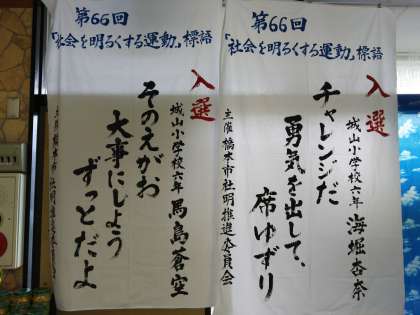 第66回
「社会を明るくする運動」標語
入選
城山小学校六年 海堀杏奈
チャレンジだ
勇気を出して、
席ゆずり
主催 橋本市社明推進委員会
第66回
「社会を明るくする運動」標語
入選
城山小学校六年 馬島蒼空
そのえがお
大事にしよう
ずっとだよ
主催 橋本市社明推進委員会